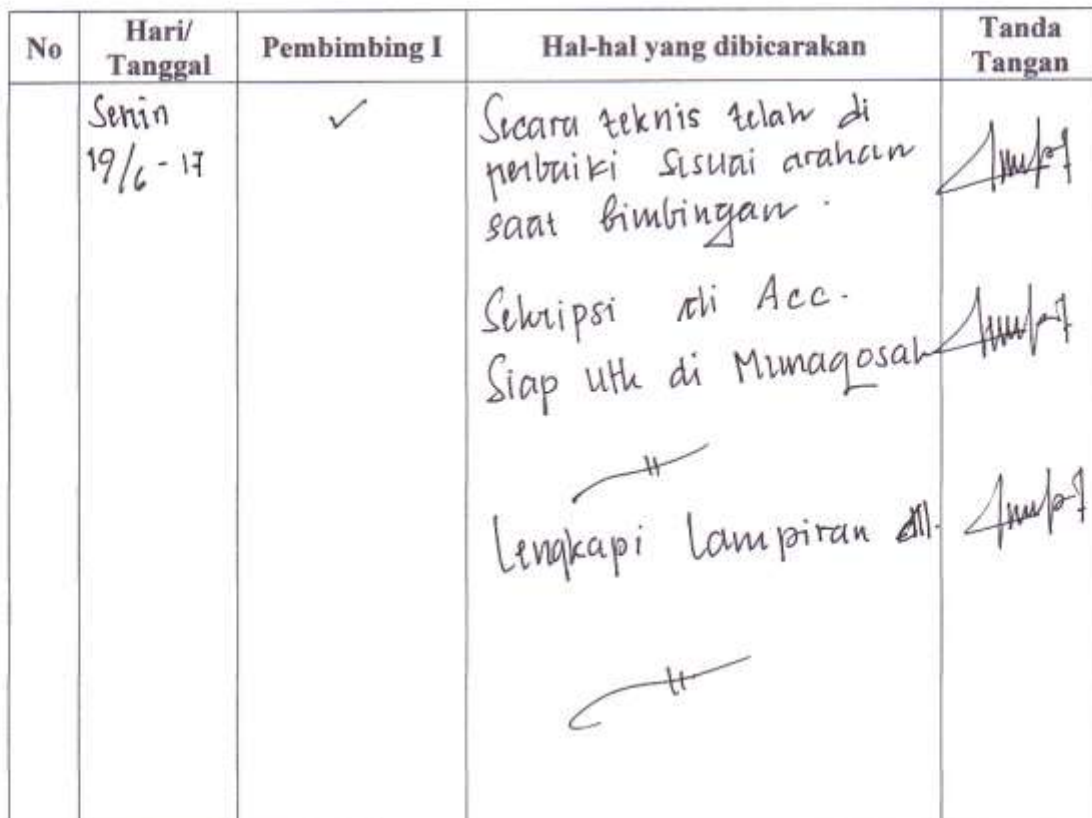 No
Hari/
Tanggal
Pembimbing I
Hal-hal yang dibicarakan
Tanda
Tangan
Senin
19/6 - 17
✓
Secara teknis telah di
perbaiki sesuai arahan
saat bimbingan.
Sekripsi di Acc.
Siap utk di Munaqosah
Lengkapi Lampiran dll.